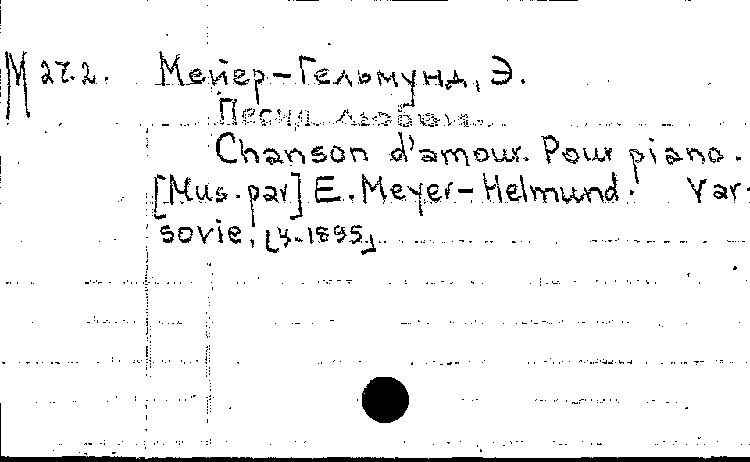 М 27.2. Мейер-Гельмунд, Э.
Песня любви.
Chanson d'amour. Pour piano.
[Mus. par] E. Meyer-Helmund. Var-
sovie,